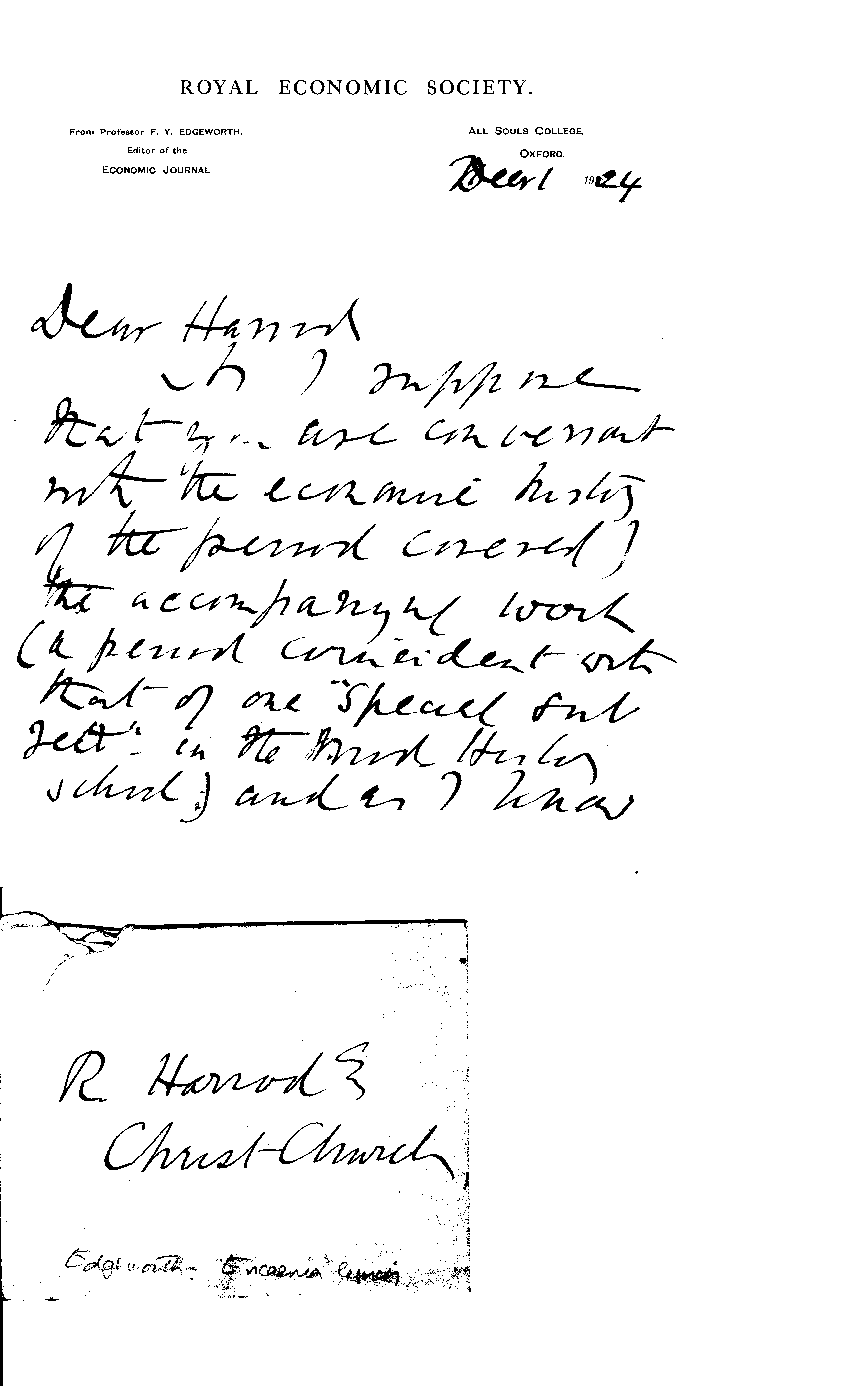 ROYAL ECONOMIC SOCIETY.
From Professor F. Y. EDGEWORTH,
Editor of the
ECONOMIC JOURNAL
ALL SOULS COLLEGE,
OXFORD.
1924
Dear Harrod
As I suppose
that you are conversant
with the economic history
of the period covered )
the accompanying work
(a period coincident with
that of one "special sub
ject" in the Mod History
school) and as I know
R Harrod Esq
Christ Church
Edgworth - Encaenia